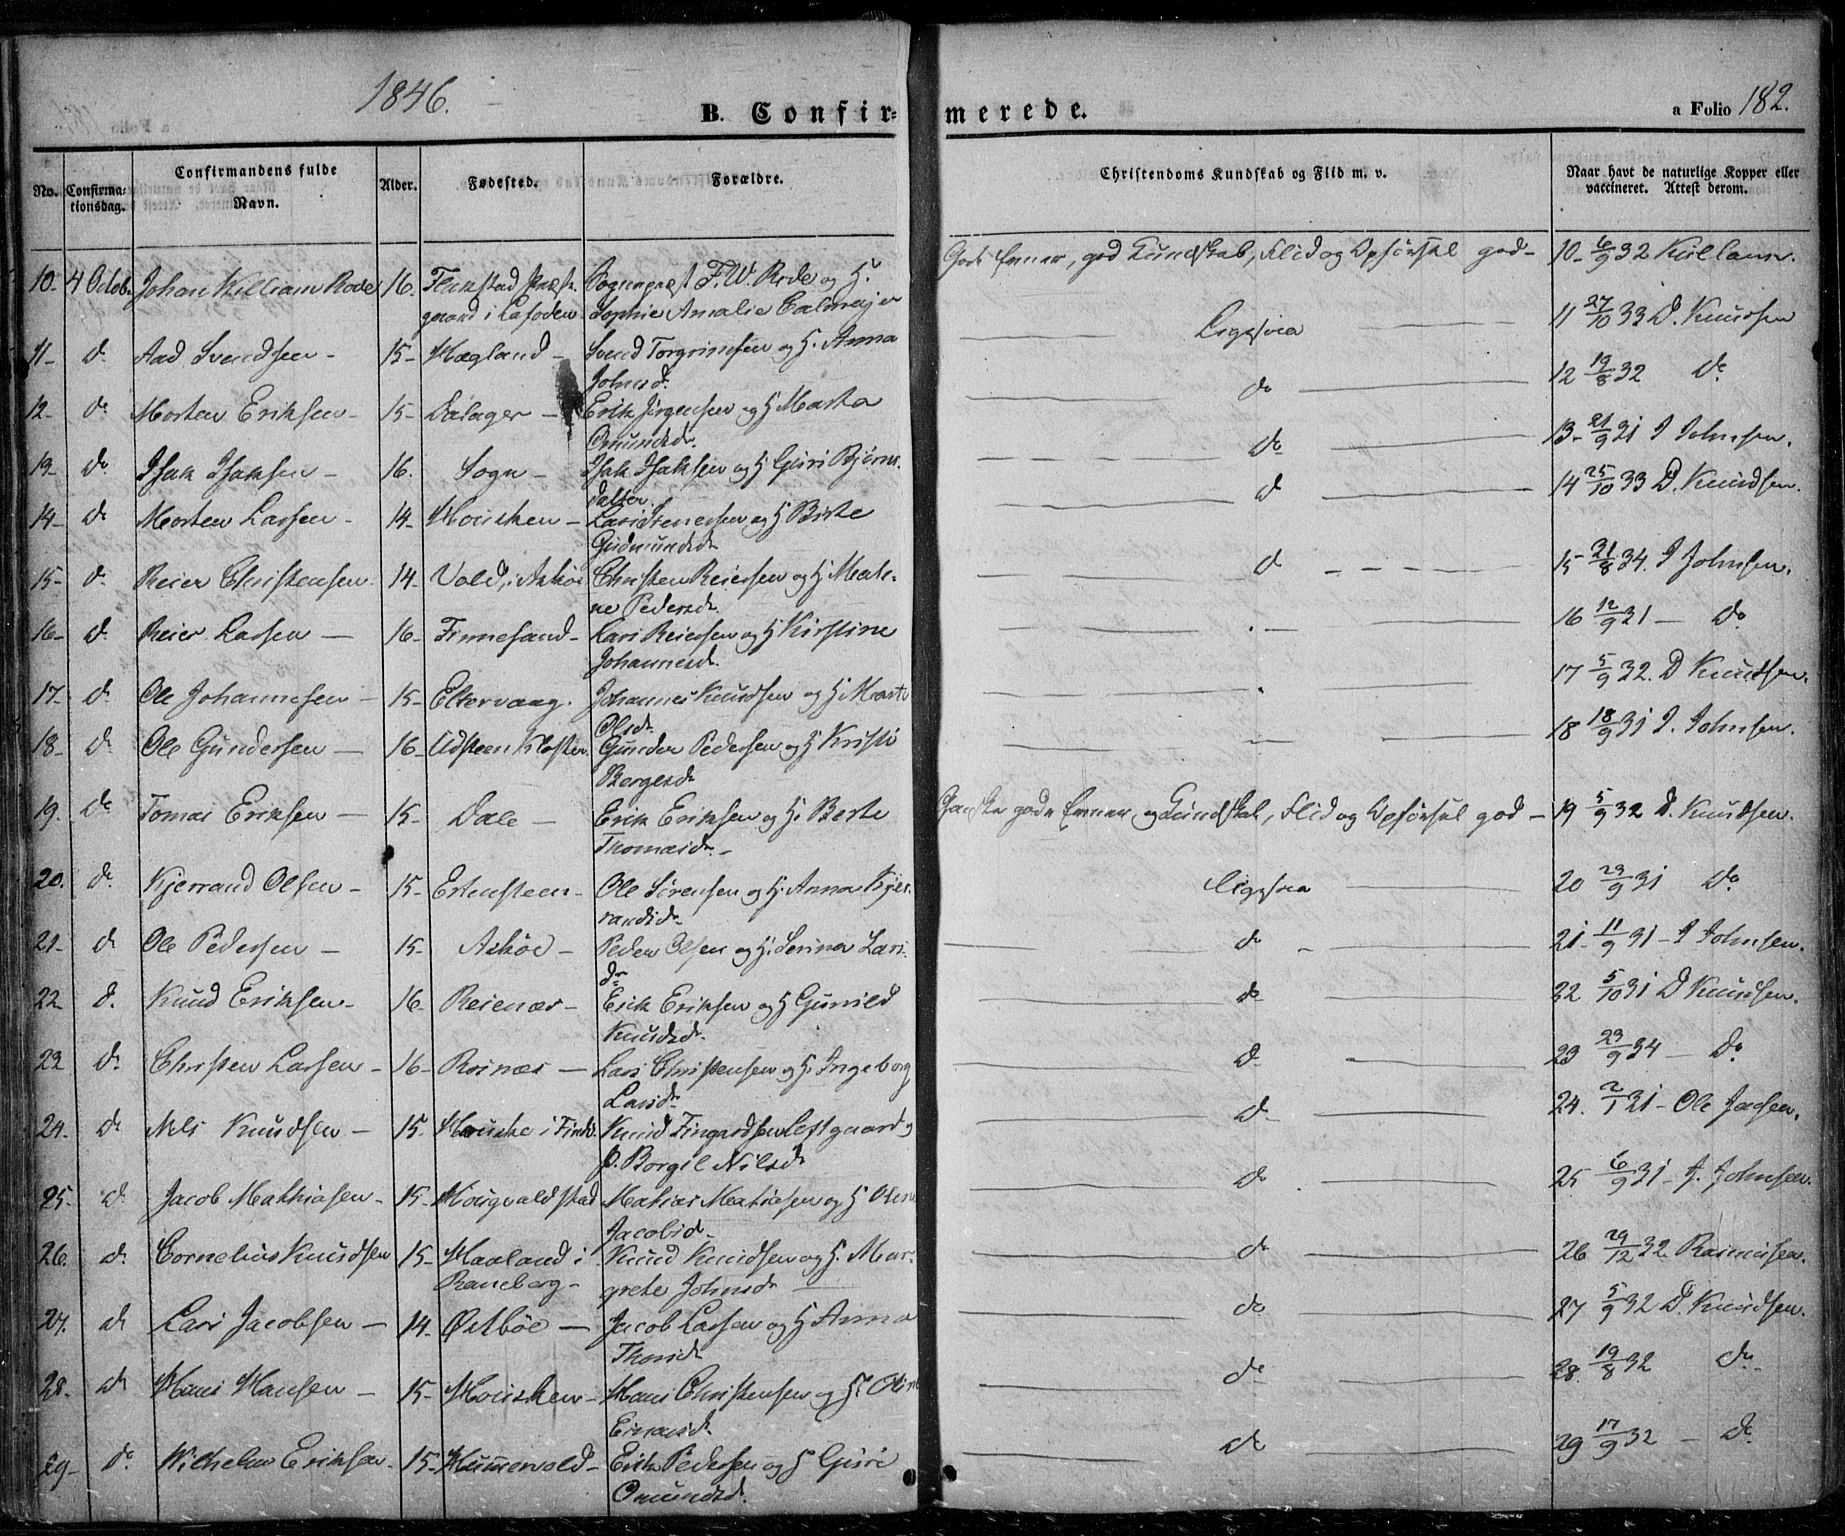 1846.
B. Confir-
merede.
a Folio 182.
No.
Confirma-
tionsdag.
Confirmandens fulde
Navn.
Alder.
Fødested.
Forældre.
Christendoms Kundskab og Flid m. v.
Naar havt de naturlige Kopper eller
vaccineret. Attest derom.
10. 4 Octob. Johan William Rode 16. Sognepræst F. W. Rode og H. Gode Evner, god Kundskab, Flid og Opførsel god- 10- 6/9 32
gaard i Lofoden Sophie Amalie Calmeijer
11- d. Aad Svendsen- 15- Høgland- Svend Torgrimsen og H. Anna Ligesaa 11 27/10 33 D. Knudsen
Johnsd.
12- do Morten Eriksen- 15- Dalager- Erik Jørgensen og H Marta do 12 19/8 32 Do
Omundsd.
13- do Isak Isaksen- 16. Sogn- Isak Isaksen og H Guri Bjørns- do 13- 21/9 31 J Johnsen.
datter.
14- d Morten Larsen- 14- Housken- og H Berte d 14 25/10 33 D. Knudsen.
Gudmundsd
15- d. Reier Christensen 14- Vold, Askøe Christen Reiersen og H Male- d 15- 21/8 34. J Johnsen.
ne Pedersd.
16- d. Reier Larsen- 16- Finnesand- Lars Reiersen og H Kirstine 16 12/9 31- Do
Johannesd.
17- d. Ole Johannesen- 15- Eltervaag. Johannes Knudsen og H. Marte 17 5/9 32. D Knudsen.
Olsd.
18- d. Ole Gundersen- 16- Udsteen Kloster Gunder Pedersen og H Kristi 18 18/9 31 J. Johnsen.
Bergesd
19. do Tomas Eriksen- 15- Dale- Erik Eriksen og H. Berte Ganske gode Evner, og Kundskab, Flid og Opførsel god- 19 5/9 32 D. Knudsen.
Thomasd.-
20. d. Kjerrand Olsen- 15- Ertensteen- Ole Sørensen og H. Anna Kjer- Ligesaa 20 29/9 31 Do
randsd.
21- d Ole Pedersen- 15- Askøe- Peder Olsen og H. Serina Lars- do 21- 11/9 31- J Johnsen.
dr
22 d. Knud Eriksen- 16- Reienæs- Erik Eriksen og H Gunild do 22 5/10 31 D Knudsen.
Knudsd.
23 d. Christen Larsen- 16- Reinæs- Lars Christensen og H. Ingeborg d 23 23/9 34- Do
Larsd.
24. d. Nels Knudsen- 15. Houske i Find. Knud d 24. 2/1 31- Ole
p. Borgil Nilsd
25- d. Jacob Mathiasen- 15- Hougvaldstad Mathias Mathiasen og H Olene do 25- 6/9 31- J. Johnsen.
Jacobsd-
26. d. Cornelius Knudsen 15- Haaland i Knud Knudsen og H. Mar- do 26 29/12 32 Rasmussen.
Raneberg- grete Johnsd-
27. d. Lars Jacobsen- 14- Østbøe- Jacob Larsen og H Anna do 27 5/9 32 D. Knudsen.
Thorsd
28- d Hans Hansen- 15- Housken- Hans Christensen og H. Oline do 28. 19/8 32 do
29- do Wilhelm Eriksen- 15- Hummervold- Erik Pedersen og H Guri do 29 17/9 32- Do
Omundsd.